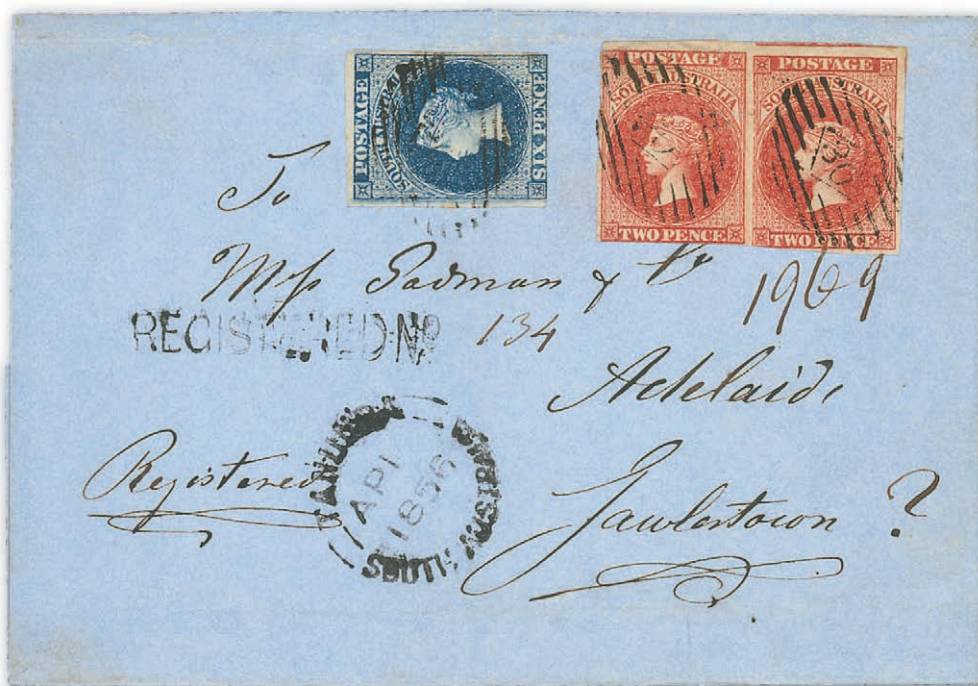 POSTAGE
SOUTH AUSTRALIA
SIX PENCE
POSTAGE
SOUTH AUSTRALIA
TWO PENCE
POSTAGE
SOUTH AUSTRALIA
TWO PENCE
To
Padman &
1969
REGISTERED No
134
Adelaide
TANUNDA
AP 1
1856
SOUTH AUSTRALIA
Registered
Gawlertown ?